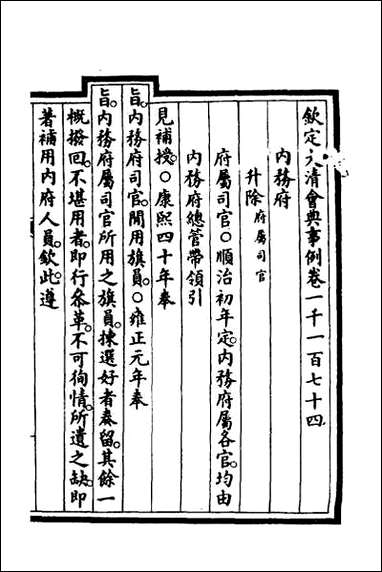 欽定大清會典事例卷一千一百七十四
內務府
升除 府屬司官
府屬司官○順治初年定。內務府屬各官。均由
內務府總管帶領引
見補授。○康熙四十年奉
旨。內務府司官。閒用旗員。○雍正元年奉
旨。內務府屬司官所用之旗員。揀選好者奏留。其餘一
概撥回。不堪用者。卽行叅革。不可徇情。所遺之缺。卽
著補用內府人員。欽此遵